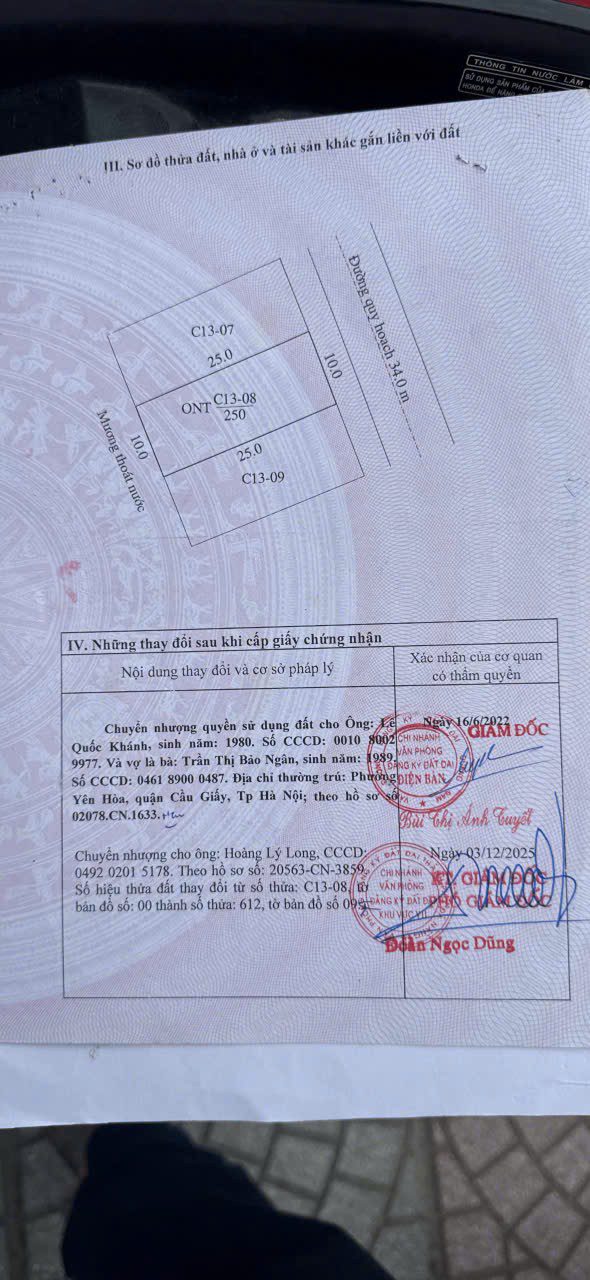 THÔNG TIN NƯỚC LÀM
SỬ DỤNG SẢN PHẨM CỦA
HONDA ĐỂ
III. Sơ đồ thửa đất, nhà ở và tài sản khác gắn liền với đất
Đường quy hoạch 34.0 m
C13-07
25.0
10.0
ONT C13-08
250
Mương thoát nước
10.0
25.0
C13-09
IV. Những thay đổi sau khi cấp giấy chứng nhận
Nội dung thay đổi và cơ sở pháp lý
Xác nhận của cơ quan
có thẩm quyền
Chuyển nhượng quyền sử dụng đất cho Ông: Lê
Quốc Khánh, sinh năm: 1980. Số CCCD: 0010 8002
9977. Và vợ là bà: Trần Thị Bảo Ngân, sinh năm: 1989,
Số CCCD: 0461 8900 0487. Địa chỉ thường trú: Phường
Yên Hòa, quận Cầu Giấy, Tp Hà Nội; theo hồ sơ số
02078.CN.1633.
Ngày 16/6/2022
GIÁM ĐỐC
CHI NHÁNH
VĂN PHÒNG
ĐĂNG KÝ ĐẤT ĐAI
ĐIỆN BÀN
Bùi Thị Ánh Tuyết
Chuyển nhượng cho ông: Hoàng Lý Long, CCCD:
0492 0201 5178. Theo hồ sơ số: 20563-CN-3859.
Số hiệu thửa đất thay đổi từ số thửa: C13-08, tờ
bản đồ số: 00 thành số thửa: 612, tờ bản đồ số
Ngày 03/12/2025
KT. GIÁM ĐỐC
PHÓ GIÁM ĐỐC
CHI NHÁNH
VĂN PHÒNG
ĐĂNG KÝ ĐẤT ĐAI
KHU VỰC VII
Đoàn Ngọc Dũng